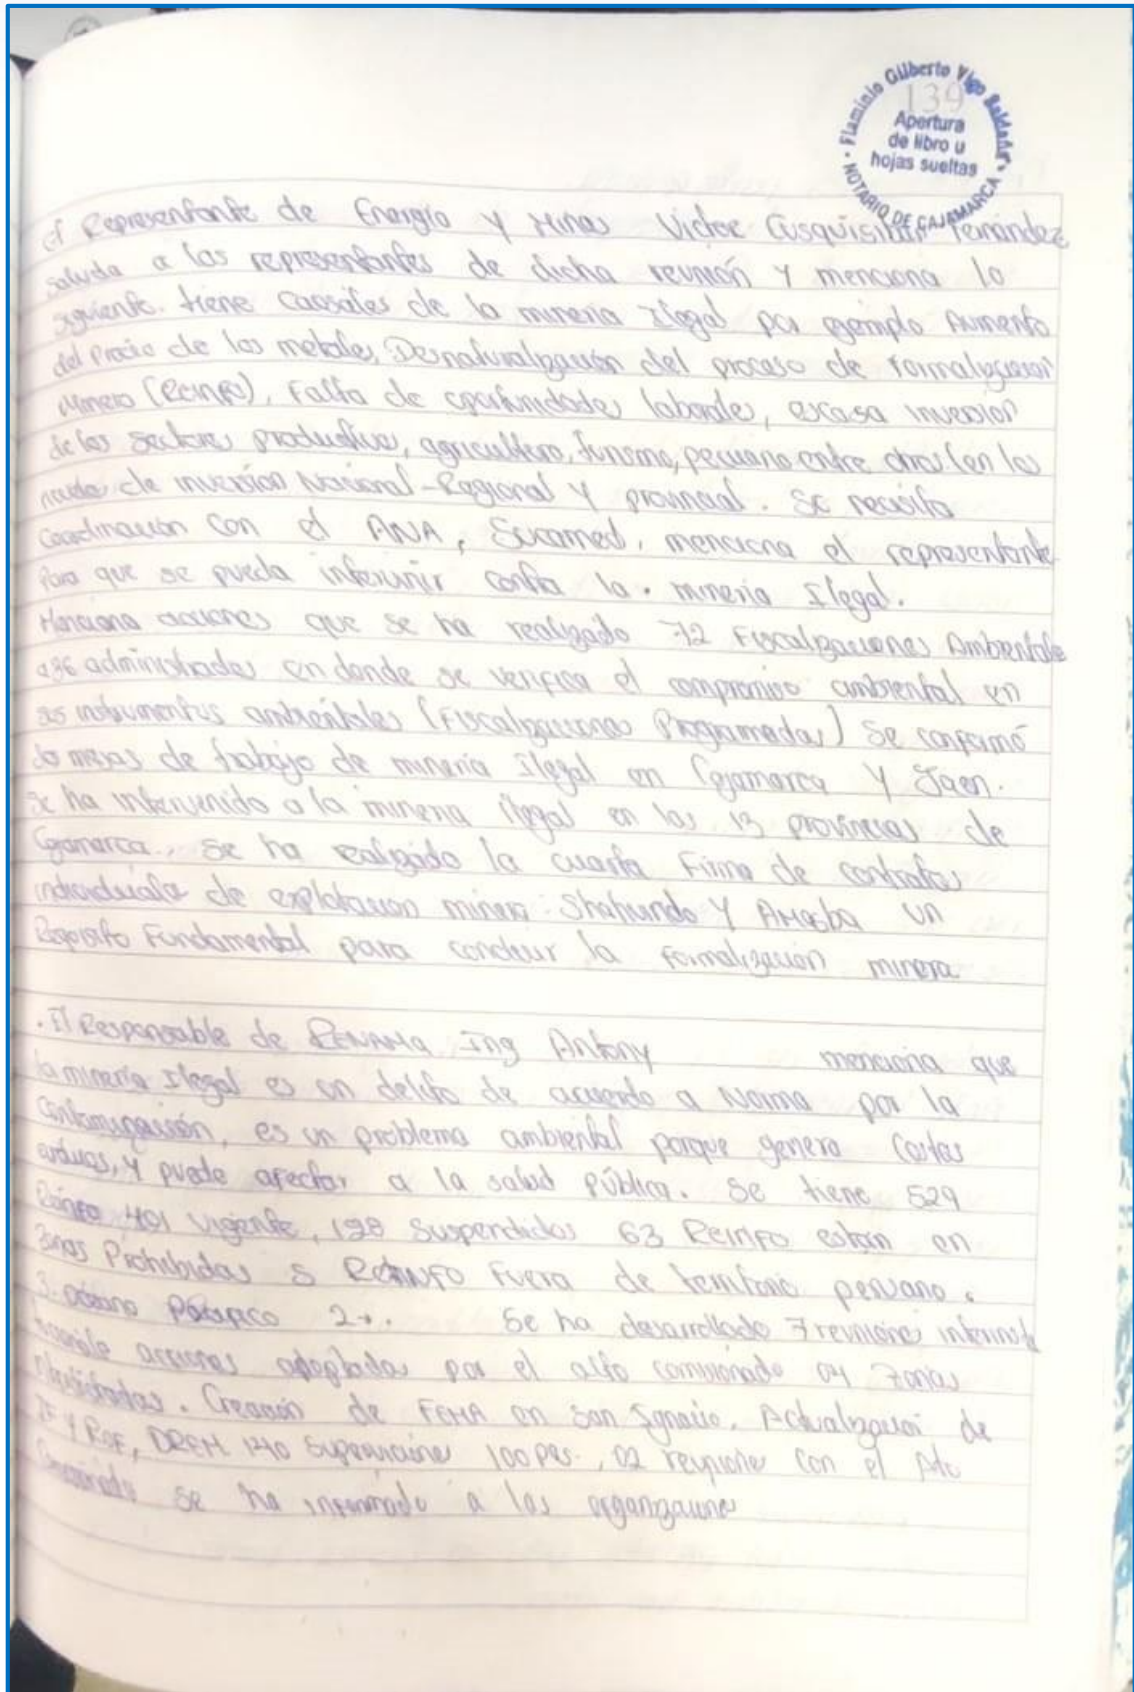 Flaminio Gilberto Vigo Saldaña
139
Apertura
de libro u
hojas sueltas
NOTARIO DE CAJAMARCA
el Representante de Energía y Minas Victor Cusquisiban Fernández
saluda a los representantes de dicha reunión y menciona lo
siguiente. tiene causales de la minería Ilegal por ejemplo Aumento
del Precio de los metales, Desnaturalización del proceso de formalización
Minero (Reinfo), Falta de oportunidades laborales, escasa inversion
de los sectores productivos, agricultura, turismo, pecuario entre otros (en los
de inversión Nacional - Regional y provincial. Se necesita
Coordinación con el ANA, Sucamec, menciona el representante
Para que se pueda intervenir contra la. minería Ilegal.
Menciona acciones que se ha realizado 72 Fiscalizaciones Ambientales
a 36 administrados en donde se verifica el compromiso ambiental en
sus instrumentos ambientales (Fiscalizaciones Programadas) Se conformó
do mesas de trabajo de minería Ilegal en Cajamarca y Jaen.
Se ha intervenido a la minería Ilegal en las 13 provincias de
Cajamarca., se ha realizado la cuarta Firma de contratos
individuales de explotacion minera Shahuindo y Algamarca un
Requisito Fundamental para concluir la Formalización minera
. El Responsable de RENAMA Ing Antony menciona que
la minería Ilegal es un delito de acuerdo a Norma por la
Contaminación, es un problema ambiental porque genera
y puede afectar a la salud pública. Se tiene 529
Reinfo 401 Vigente, 128 Suspendidos 63 Reinfo estan en
Zonas Prohibidas 5 REINFO Fuera de territorio peruano.
3 - Océano Pacífico 2 Se ha desarrollado 7 reuniones
acciones adoptadas por el alto comisionado 04 zonas
Creación de FEMA en San Ignacio. Actualización de
y ROF, DREM 140 Supervisiones 02 reuniones con el Alto
Comisionado se ha informado a las organizaciones